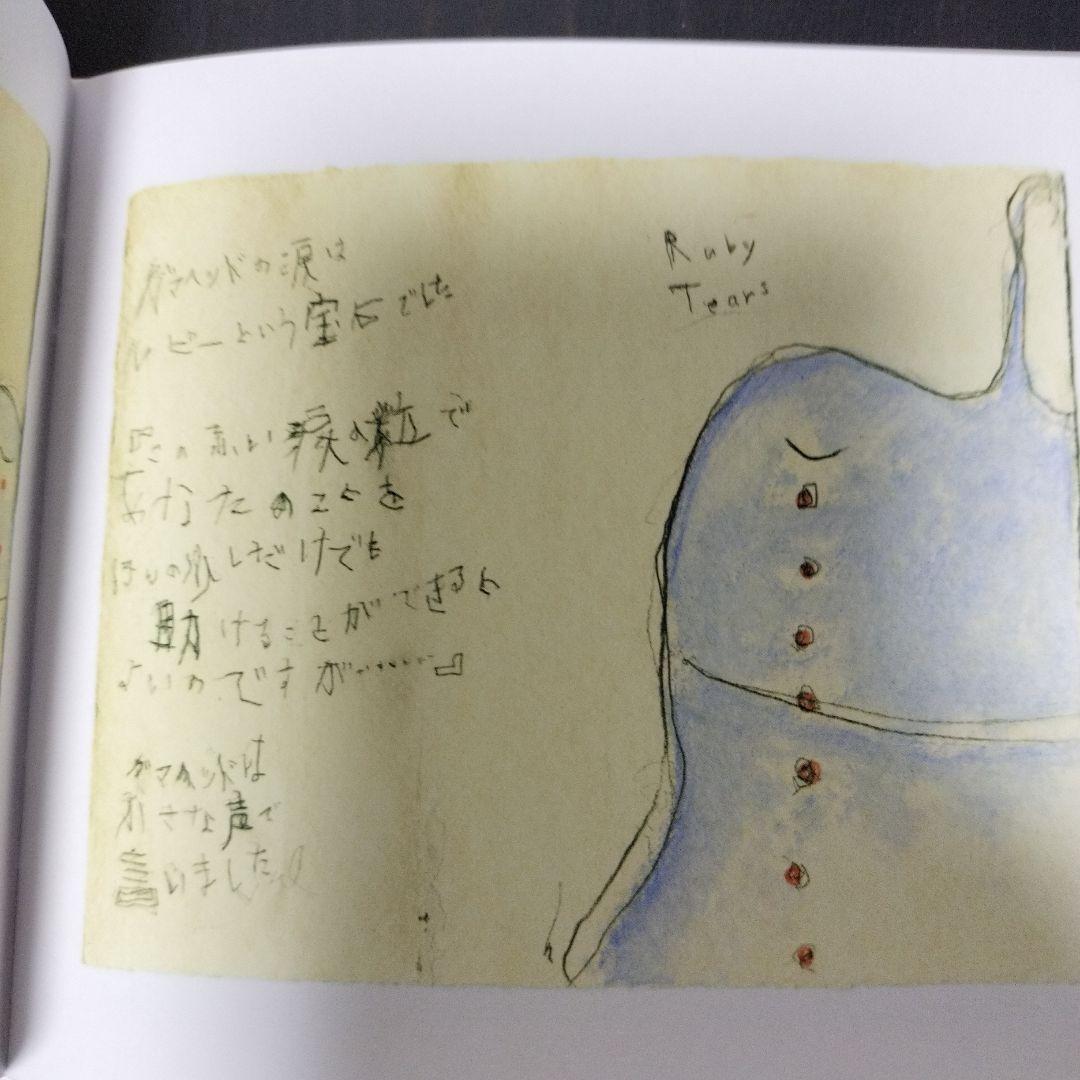 ガマヘッドの涙は
ルビーという宝石でした
『この赤い涙の粒で
あなたのことを
ほんの少しだけでも
助けることができると
よいのですが………』
ガマヘッドは
小さな声で
言いました
Ruby
Tears